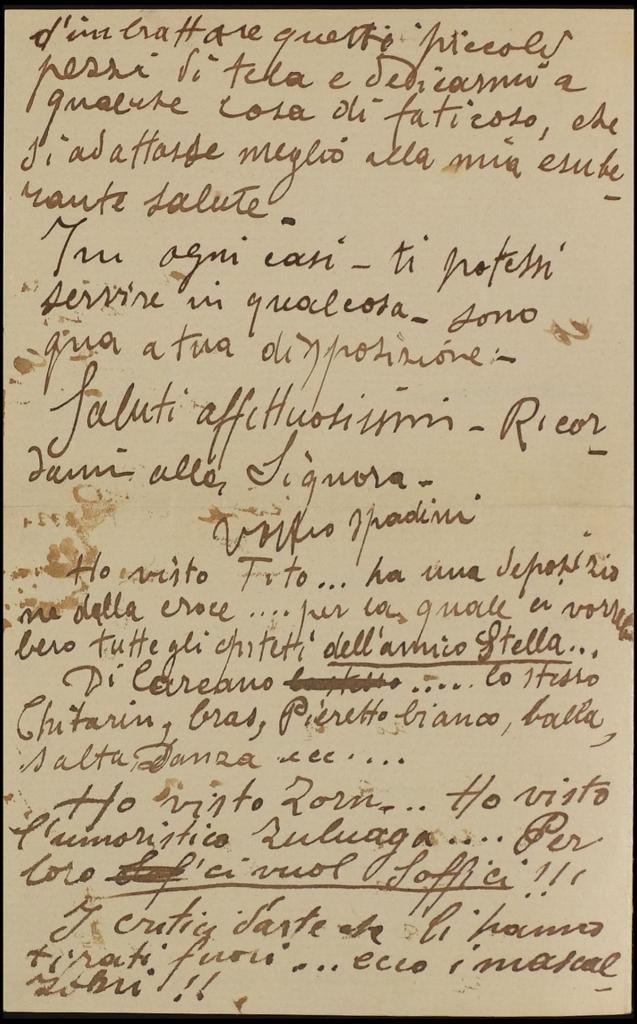 d'imbrattare questi piccoli
pezzi di tela e dedicarmi a
qualche cosa di faticoso, che
si adattasse meglio alla mia esube-
rante salute-
In ogni casi - ti potessi
servire in qualcosa - sono
qua a tua disposizione -
Saluti affettuosissimi - Ricor-
dami alla Signora -
Vostro Spadini
Ho visto Tito... ha una deposizio
ne dalla croce .... per la quale ci vorreb
bero tutte gli epiteti dell'amico Stella...
Di Carcano ..... lo stesso
Chitarin, Gras, Pieretto bianco, balla,
salta, Danza ecc....
Ho visto Zorn... Ho visto
l'umoristico Zuluaga.... Per
loro ci vuol Soffici!!!
I critici d'arte che li hanno
tirati fuori ... ecco i mascal
zoni!!